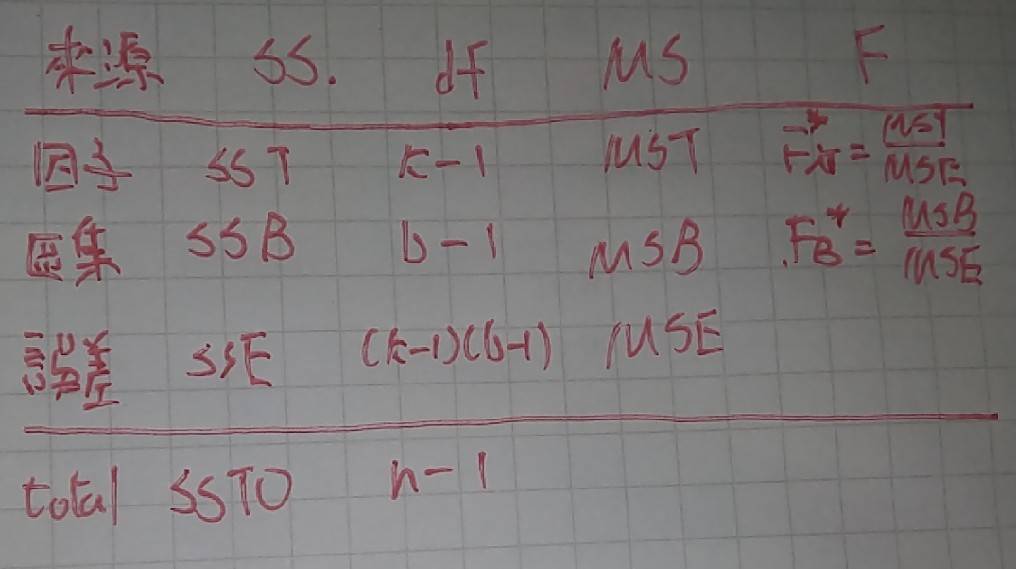 來源 SS. df MS F
因子 SST k-1 MST F* = MST/MSE
區集 SSB b-1 MSB FB* = MSB/MSE
誤差 SSE (k-1)(b-1) MSE
total SSTO n-1